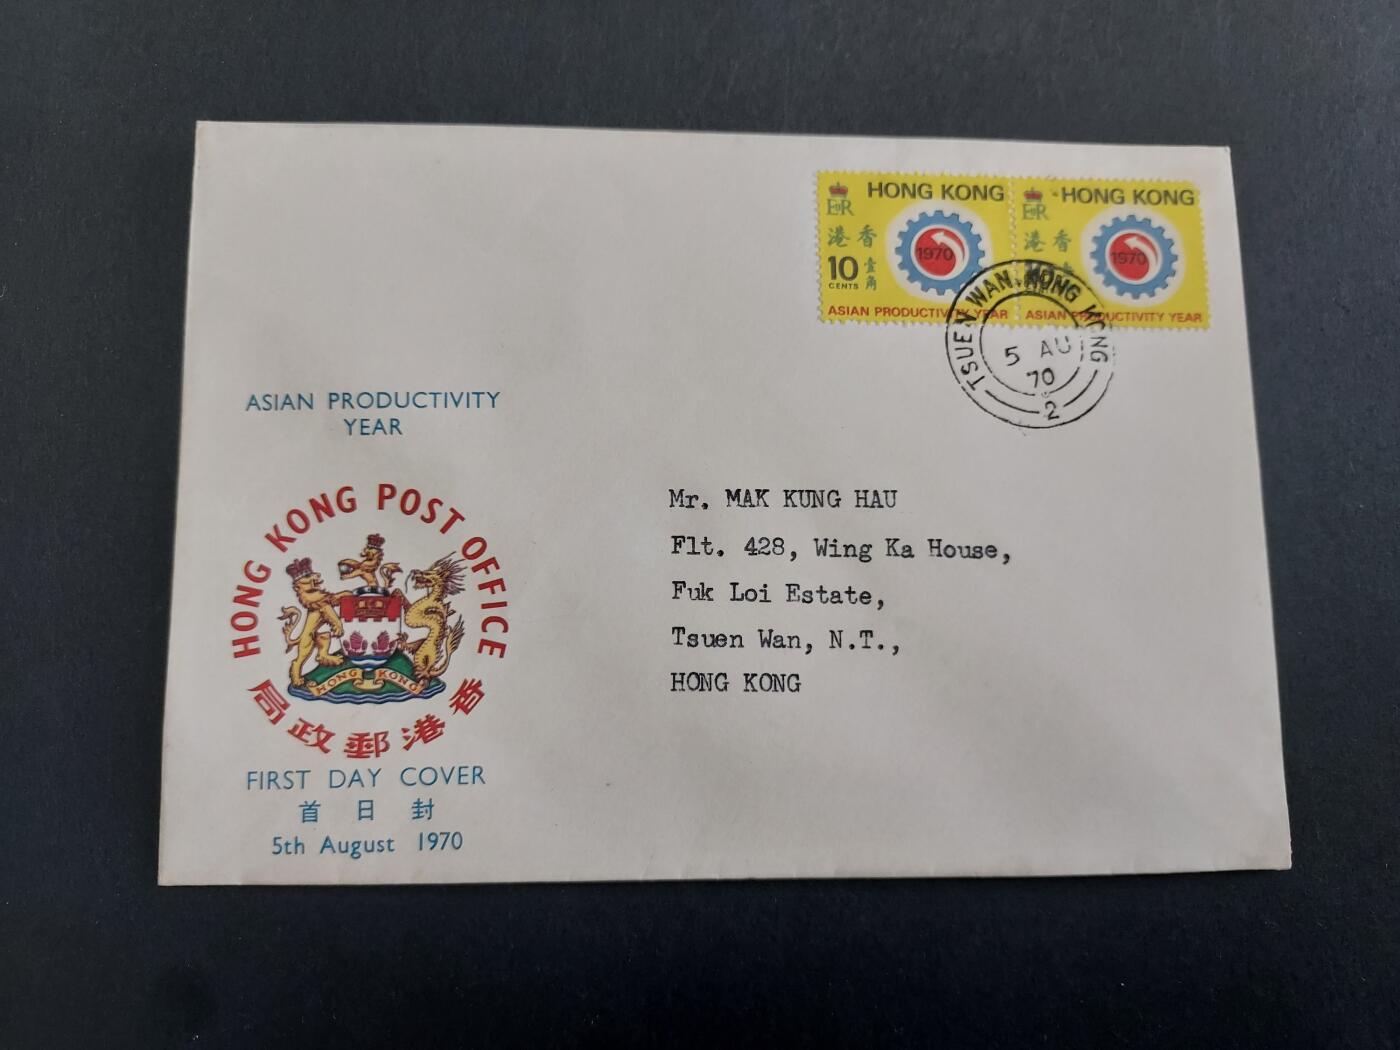 HONG KONG
E II R
港 香
10 壹角
CENTS
1970
ASIAN PRODUCTIVITY YEAR
HONG KONG
E II R
港 香
1970
ASIAN PRODUCTIVITY YEAR
TSUEN WAN, HONG KONG
5 AU
70
2
ASIAN PRODUCTIVITY
YEAR
HONG KONG POST OFFICE
HONG KONG
局政郵港香
FIRST DAY COVER
首日封
5th August 1970
Mr. MAK KUNG HAU
Flt. 428, Wing Ka House,
Fuk Loi Estate,
Tsuen Wan, N.T.,
HONG KONG